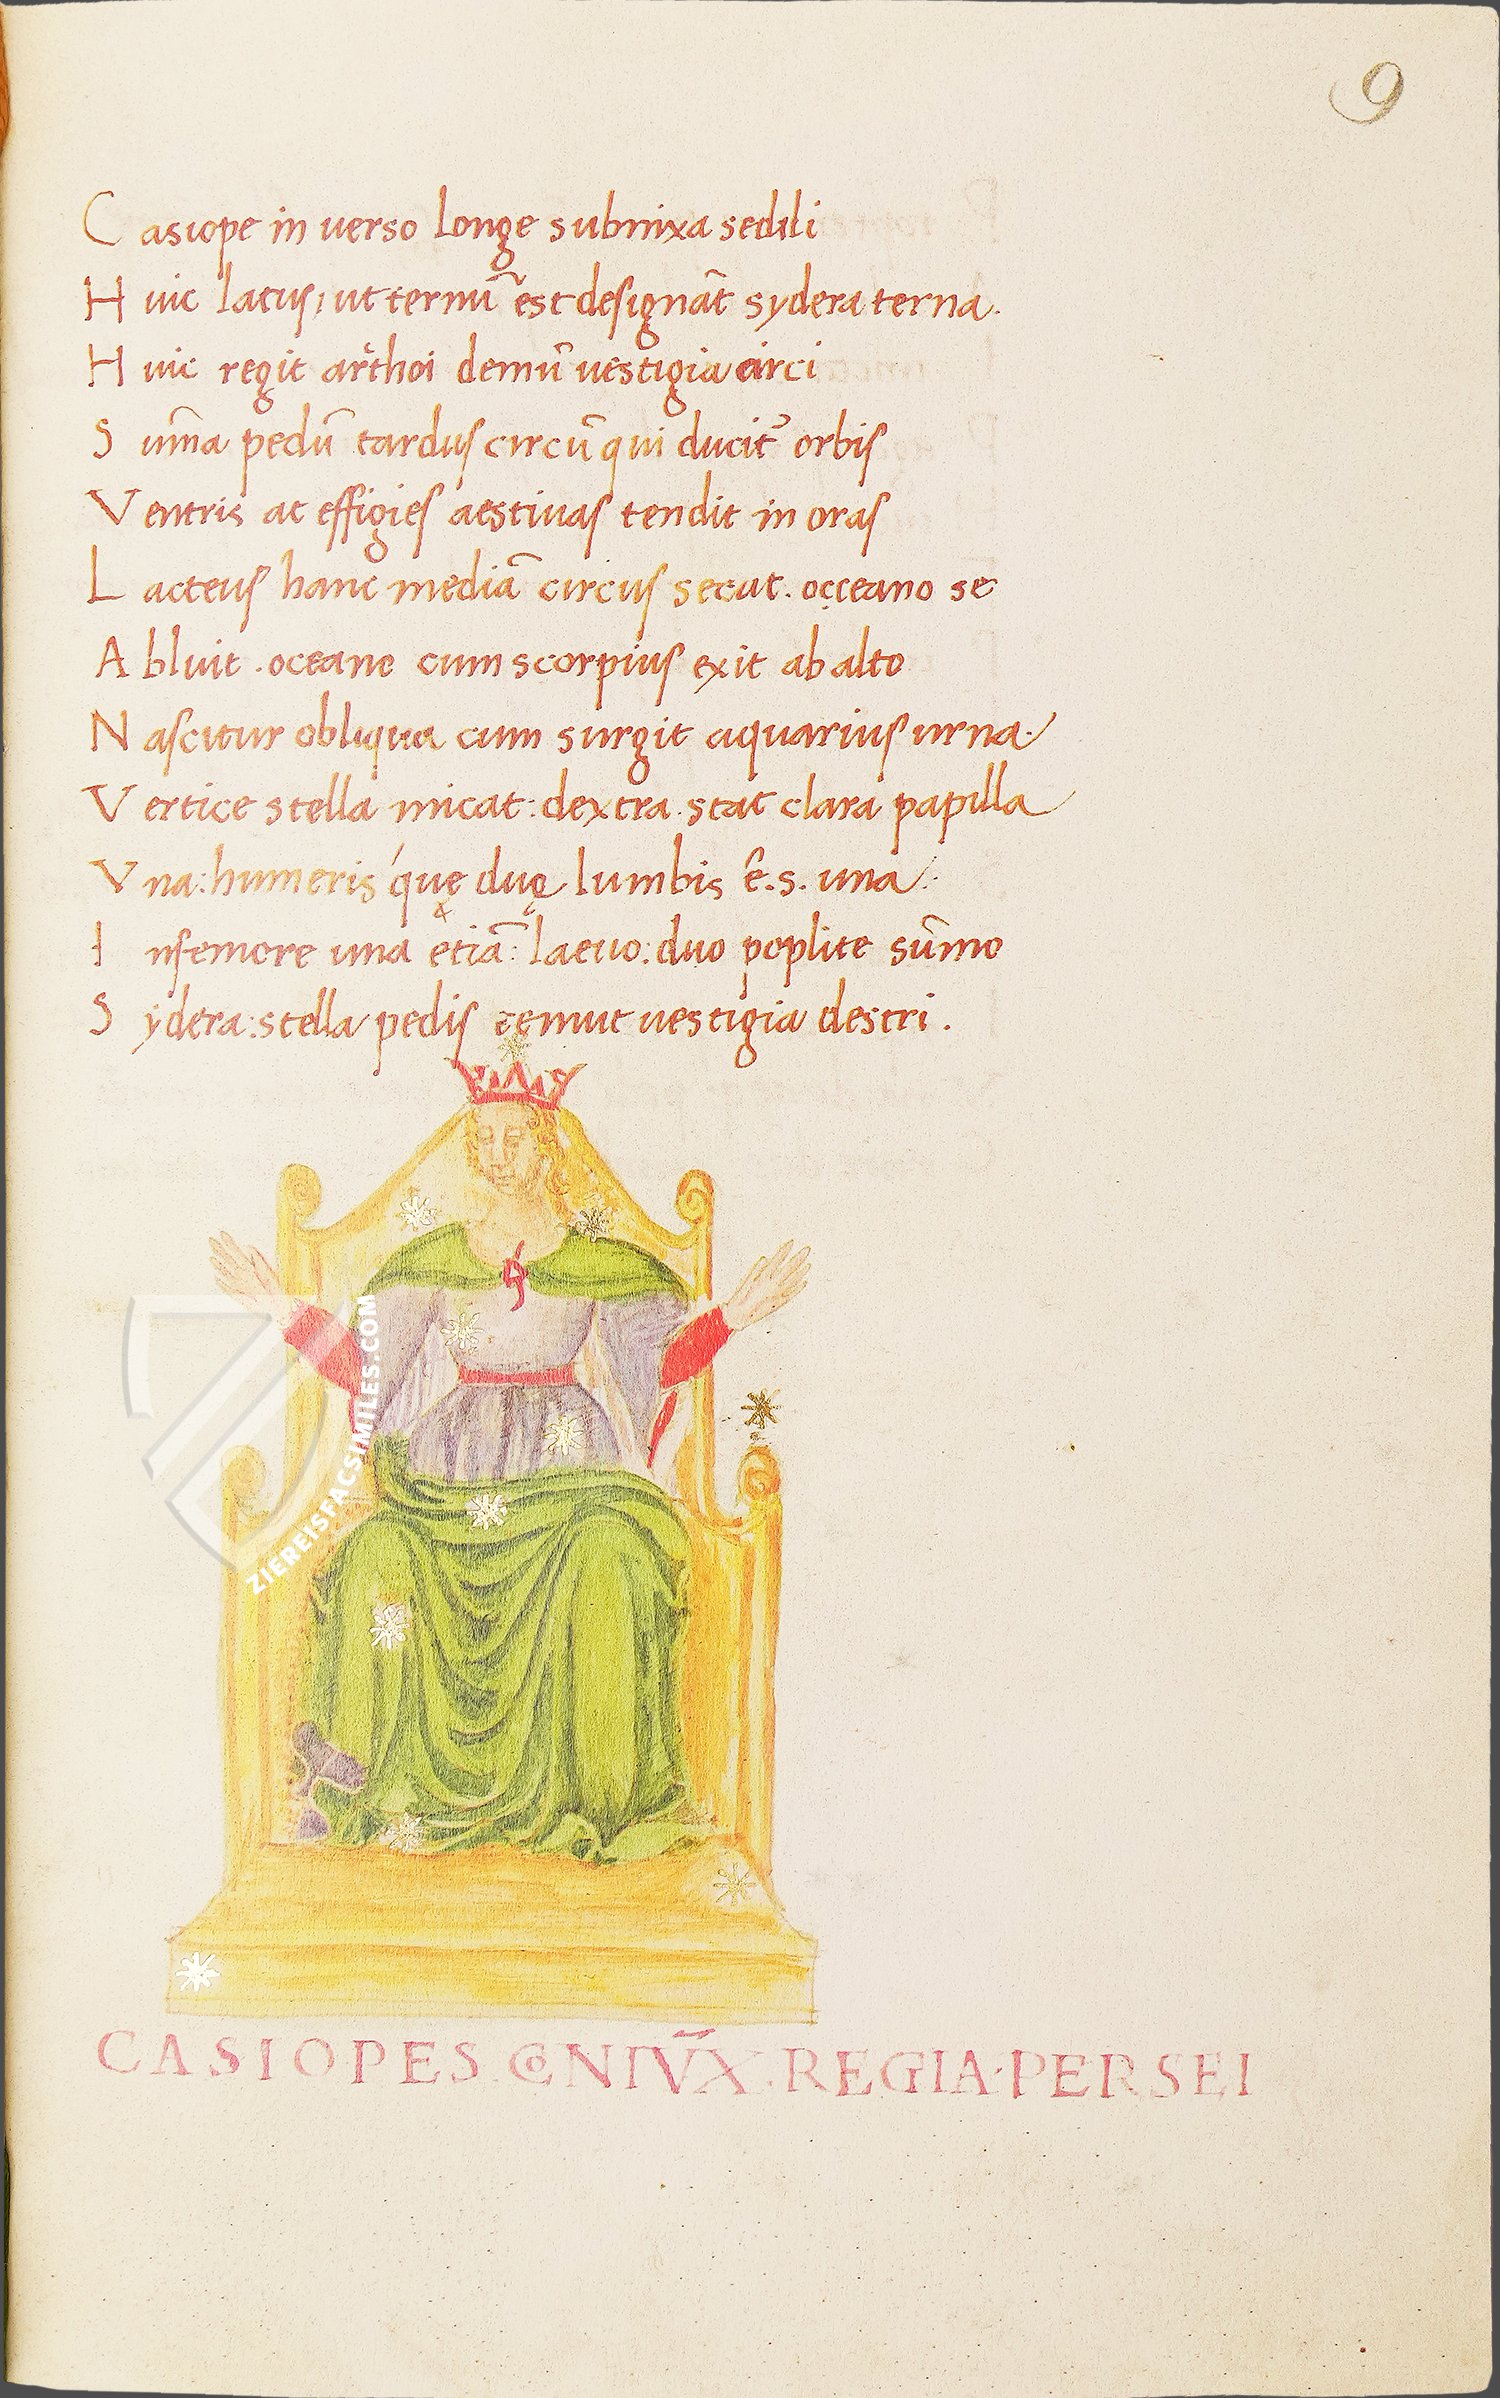 9
Casiope in verso longe subnixa sedili
Huic latus, ut ternũ est designãt sydera terna.
Huic regit arcthoi demũ vestigia circi
Sũma pedũ tardus circũ qui ducit᷑ orbis
Ventris at effigies aestivas tendit in oras
Lacteus hanc mediã circus secat. occeano se
Abluit. oceane cum scorpius exit ab alto
Nascitur obliqua cum surgit aquarius urna.
Vertice stella micat: dextra. stat clara papilla
Vna: humeris quę duę lumbis ẽ. s. una:
Insemore una etiã: laevo: duo poplite sũmo
Sydera: stella pedis temut vestigia destri.
ZIEREISFACSIMILES.COM
CASIOPES. CONIṼX. REGIA. PERSEI